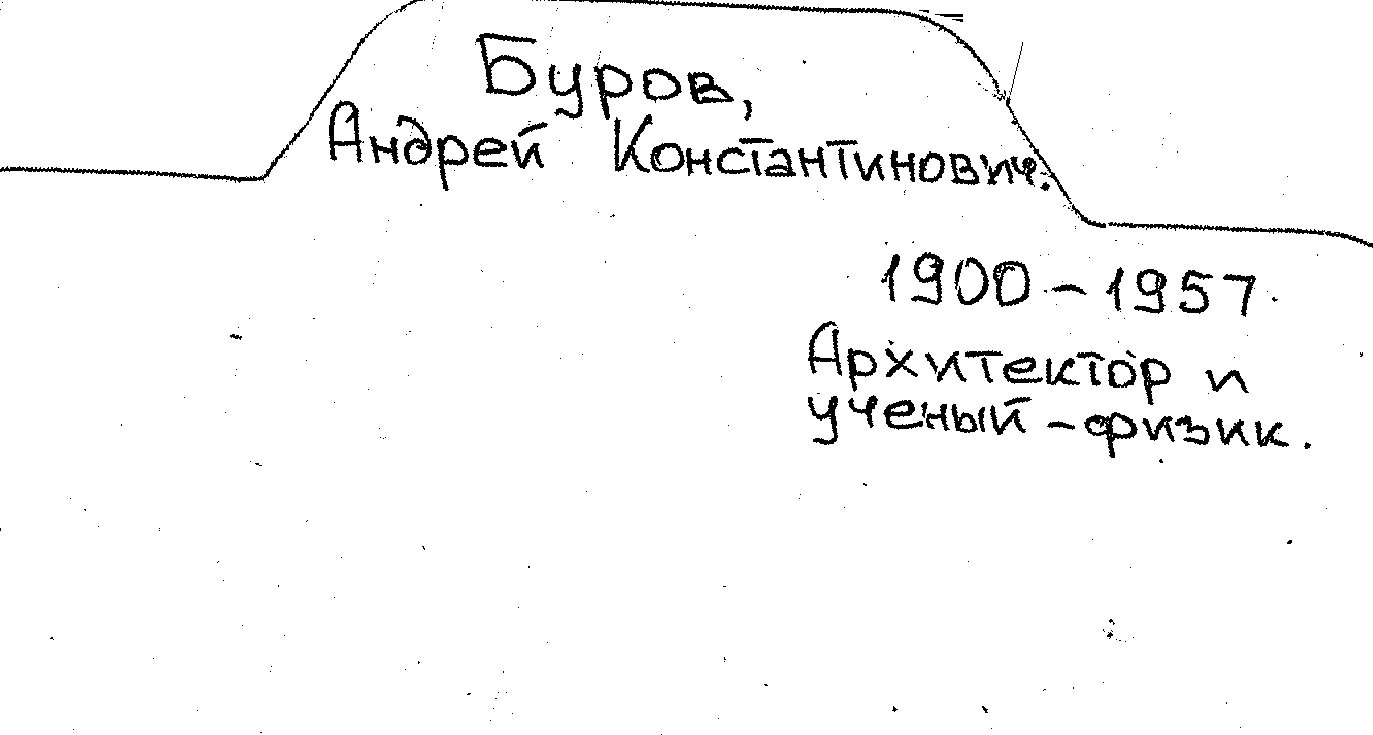 Буров,
Андрей Константинович.
1900-1957
Архитектор и
ученый-физик.